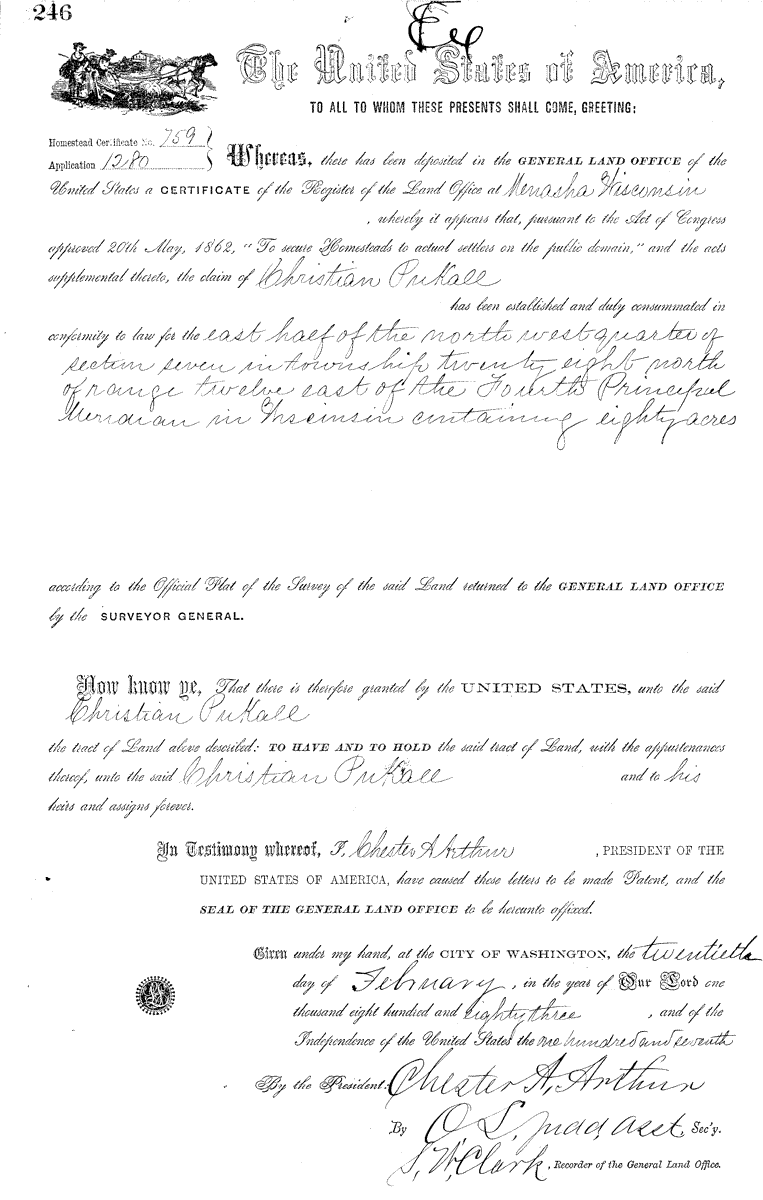 246
Ex
The United States of America,
TO ALL TO WHOM THESE PRESENTS SHALL COME, GREETING:
Homestead Certificate No. 759
Application 1280
Whereas, there has been deposited in the GENERAL LAND OFFICE of the
United States a CERTIFICATE of the Register of the Land Office at Menasha Wisconsin
, whereby it appears that, pursuant to the Act of Congress
approved 20th May, 1862, "To secure Homesteads to actual settlers on the public domain," and the acts
supplemental thereto, the claim of Christian Pukall
has been established and duly consummated in
conformity to law for the east half of the north west quarter of
section seven in township twenty eight north
of range twelve east of the Fourth Principal
Meridian in Wisconsin containing eighty acres
according to the Official Plat of the Survey of the said Land returned to the GENERAL LAND OFFICE
by the SURVEYOR GENERAL.
Now know ye, That there is therefore granted by the UNITED STATES, unto the said
Christian Pukall
the tract of Land above described: TO HAVE AND TO HOLD the said tract of Land, with the appurtenances
thereof, unto the said Christian Pukall and to his
heirs and assigns forever.
In Testimony whereof, I, Chester A Arthur , PRESIDENT OF THE
UNITED STATES OF AMERICA, have caused these letters to be made Patent, and the
SEAL OF THE GENERAL LAND OFFICE to be hereunto affixed.
Given under my hand, at the CITY OF WASHINGTON, the twentieth
day of February , in the year of Our Lord one
thousand eight hundred and eighty three , and of the
Independence of the United States the one hundred and seventh
By the President: Chester A. Arthur
By O L. Judd, Asst. Sec'y.
S. W. Clark , Recorder of the General Land Office.